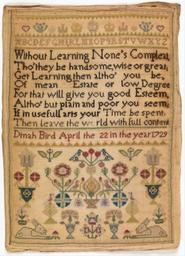 ABCDEFGHIKLMNOPQRSTVWXYZ
Without Learning None's Compleat
Tho' they be handsome, wise or great,
Get Learning then altho' you be,
Of mean Estate or low Degree
For that will give you good Esteem,
Altho' but plain and poor you seem,
If in usefull arts your Time be spent,
Then leave the world with full content
Dinah Bird April the 22 in the year 1729